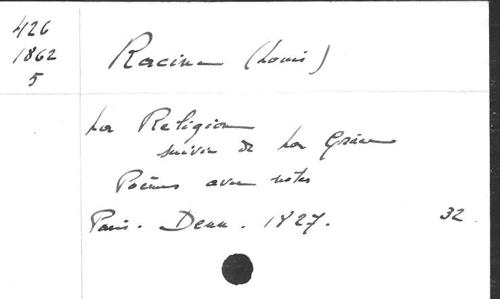 426
1862
5
Racine (Louis)
La Religion
suivie de La Grâce
Poèmes avec notes
Paris. Denn. 1827. 32.